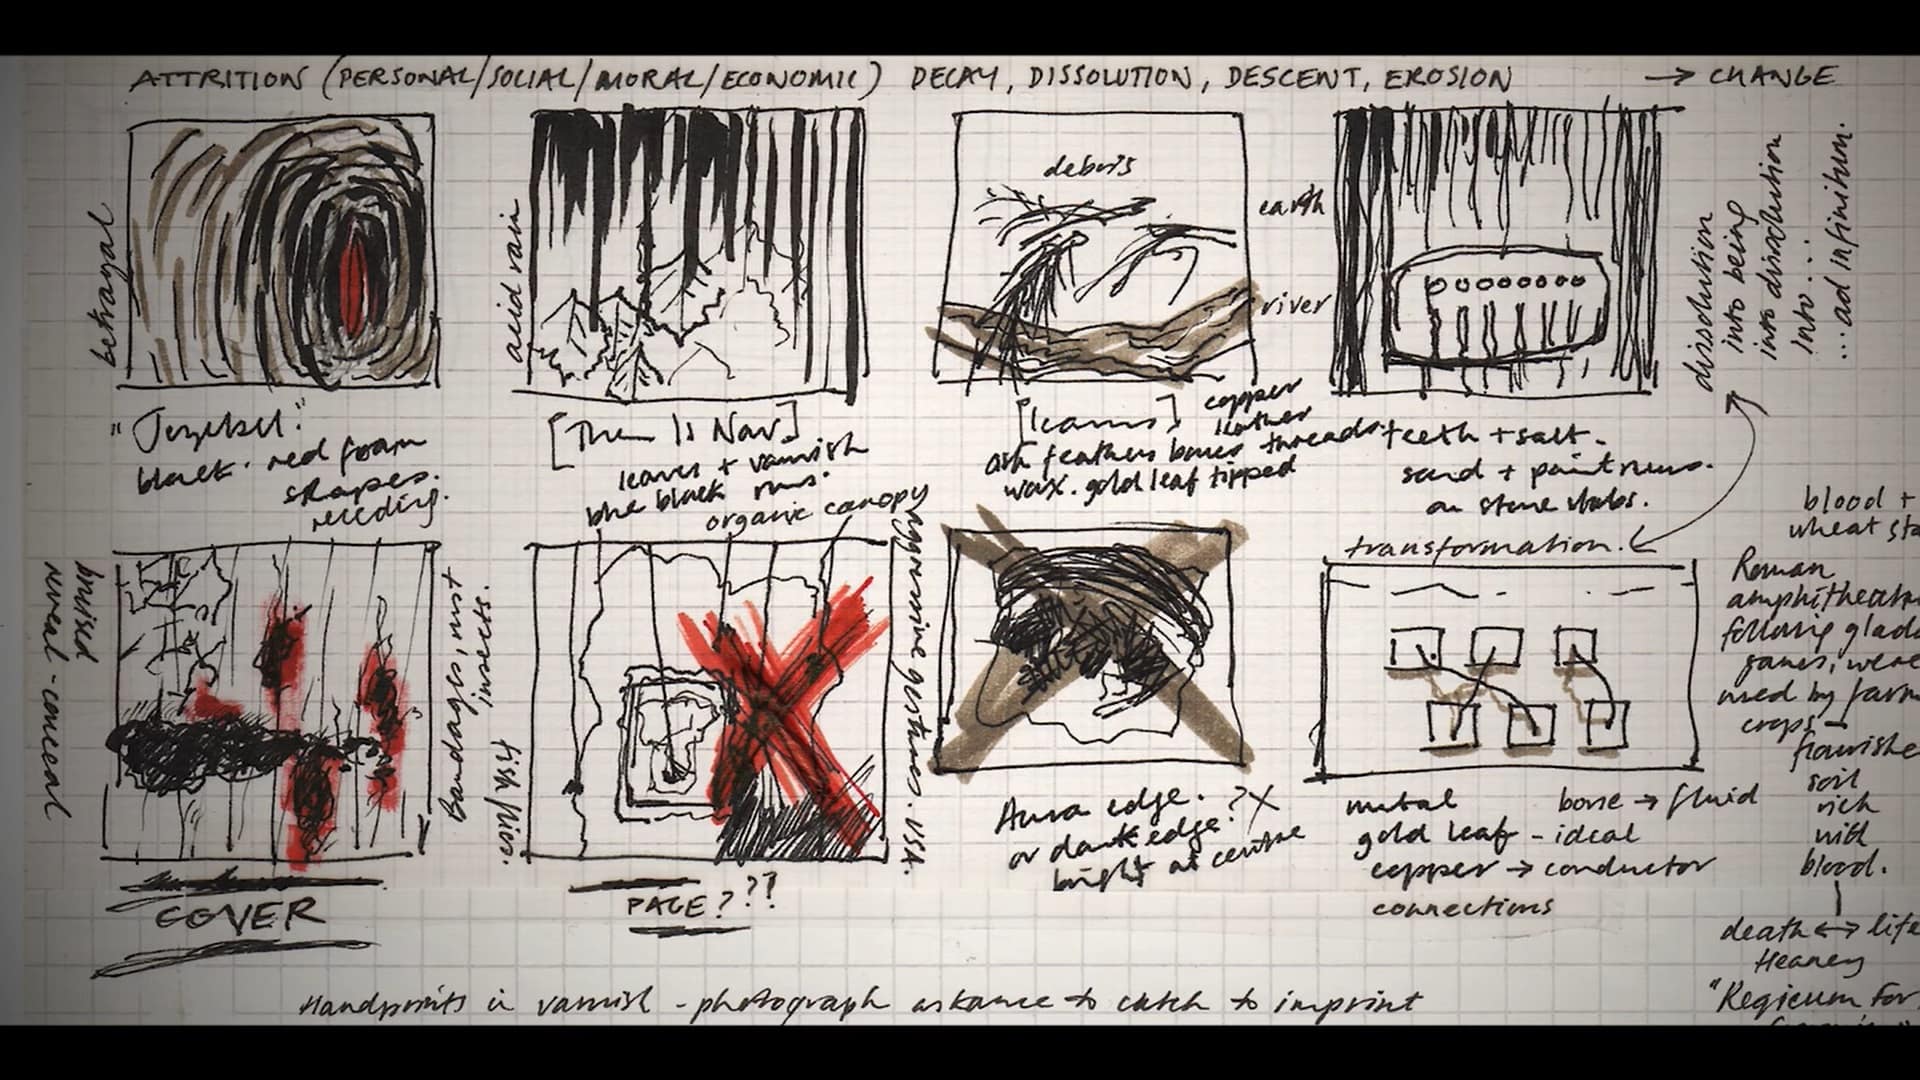 ATTRITION (PERSONAL/SOCIAL/MORAL/ECONOMIC) DECAY, DISSOLUTION, DESCENT, EROSION → CHANGE
betrayal
acid rain
debris
earth
river
dissolution
into being
into dissolution
into ....
... ad infinitum.
"Jezebel."
black. red foam
shapes.
receding.
[Then Is Now]
leaves + varnish
blue black runs.
organic canopy
[Icarus]
copper
leather
ash feathers bones threads.
wax. gold leaf tipped
teeth + salt.
sand + paint runs.
on stone slabs.
transformation.
blood +
wheat
Roman
amphitheatre
following
games, were
used by
crops
flourishe
soil
rich
with
blood.
death ↔ life
Heaney
"Requiem for
bruised
reveal - conceal
Bandages rust
insects.
fish/flies.
aggressive gestures. USA.
COVER
PAGE???
Aura edge. ?X
or dark edge?
bright at centre
metal bone → fluid
gold leaf - ideal
copper → conductor
connections
Handprints in varnish - photograph askance to catch to imprint